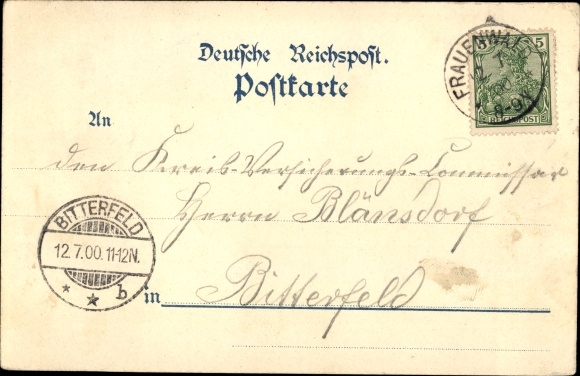 Deutsche Reichspost.
Postkarte
FRAUENWA
5
8-9
REICHSPOST
An
den Kreis-Versicherungs-Commissar
Herrn Blänsdorf
BITTERFELD
12.7.00.11-12N.
* * b
in Bitterfeld